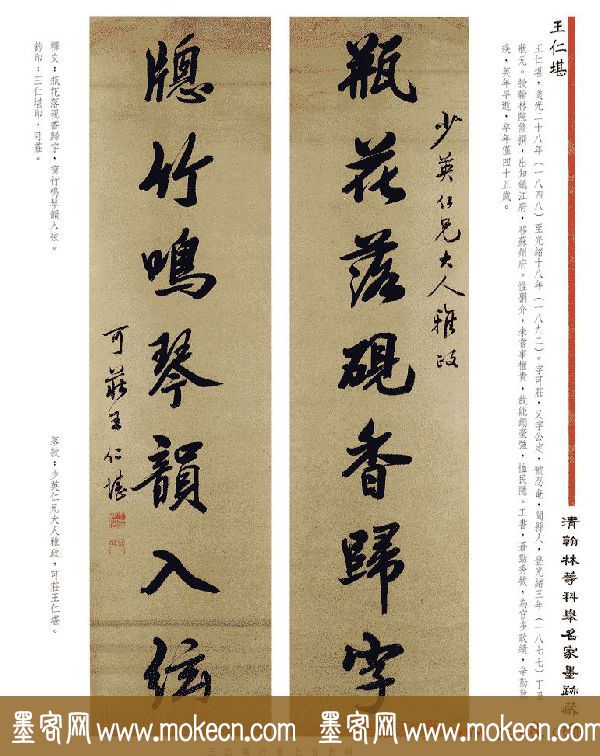 王仁堪
王仁堪，道光二十八年（一八四八）至光緒十八年（一八九二）。字可莊，又字公定，號忍庵，閩縣人，登光緒三年（一八七七）丁丑
狀元。授翰林院修撰，出知鎮江府，移蘇州府。性剛介，未嘗事權貴，故能鋤豪強，恤民隱。工書，蒼勁秀拔，為官多政績，辛勤
後，英年早逝，卒年僅四十五歲。
清翰林等科舉名家墨跡藏
少英仁兄大人雅政
瓶花落硯香歸字
牕竹鳴琴韻入弦
可莊王仁堪
釋文：瓶花落硯香歸字，窗竹鳴琴韻入弦。
鈐印：王仁堪印，可莊。
落款：少英仁兄大人雅政，可莊王仁堪。
墨客网 www.mokecn.com 墨客网 www.mokecn.com